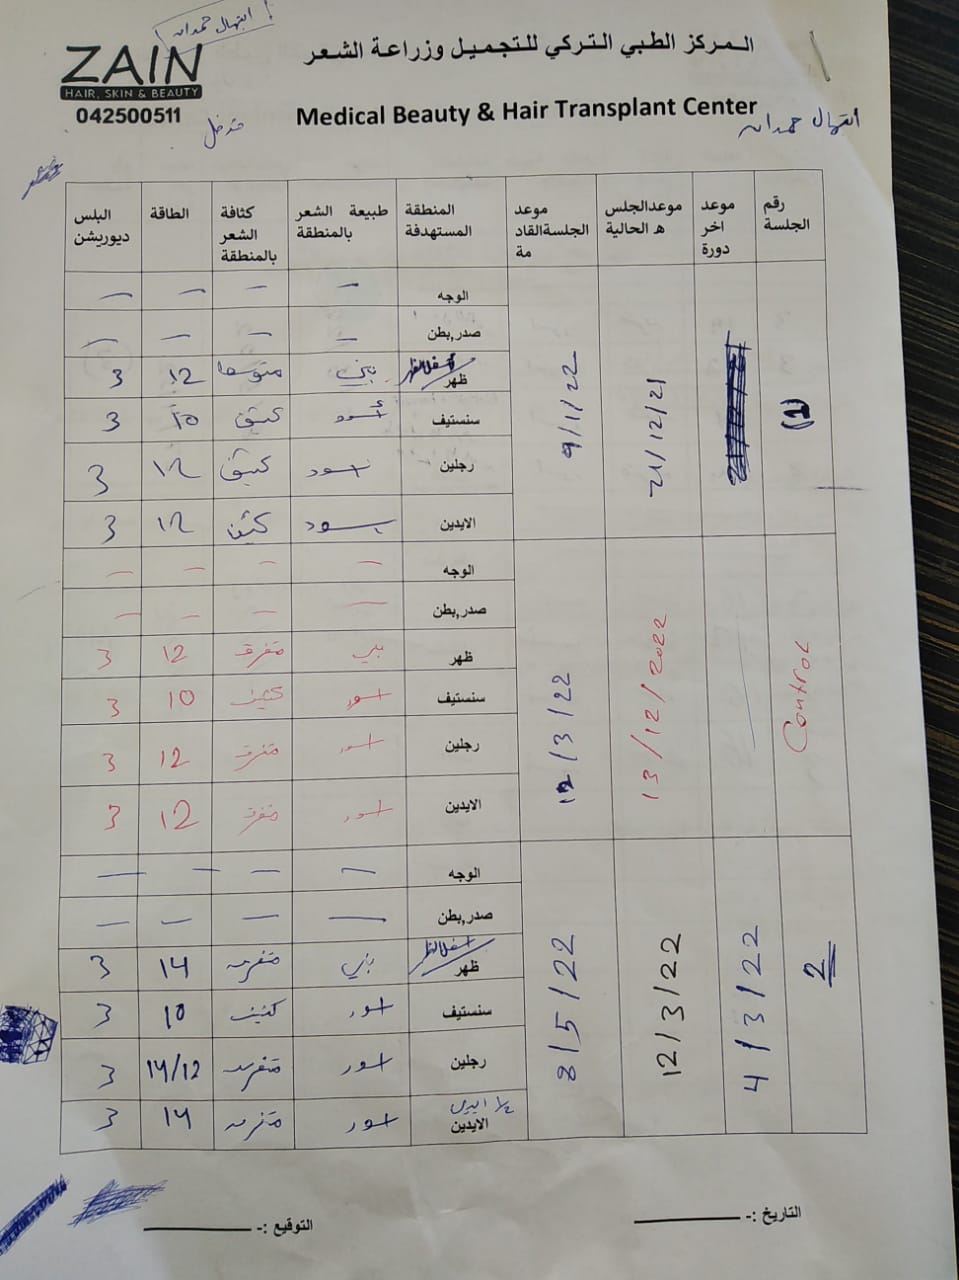 ابتهال حمدان
ZAIN
HAIR, SKIN & BEAUTY
042500511
المركز الطبي التركي للتجميل وزراعة الشعر
Medical Beauty & Hair Transplant Center
ابتهال حمدان
رقم الجلسة | موعد اخر دورة | موعدالجلس ه الحالية | موعد الجلسةالقاد مة | المنطقة المستهدفة | طبيعة الشعر بالمنطقة | كثافة الشعر بالمنطقة | الطاقة | البلس ديوريشن
(1) | 21/12/21 | 9/1/22
الوجه | — | — | — | —
صدر,بطن | — | — | — | —
أسفل الظهر ظهر | بني | متوسط | 12 | 3
سنستيف | أسود | كثيف | 10 | 3
رجلين | اسود | كثيف | 12 | 3
الايدين | اسود | كثيف | 12 | 3
Control | 13/12/2022 | 12/3/22
الوجه | — | — | — | —
صدر,بطن | — | — | — | —
ظهر | بني | متفرق | 12 | 3
سنستيف | اسود | كثيف | 10 | 3
رجلين | اسود | متفرق | 12 | 3
الايدين | اسود | متفرق | 12 | 3
2 | 4/3/22 | 12/3/22 | 8/5/22
الوجه | — | — | — | —
صدر,بطن | — | — | — | —
اسفل الظهر ظهر | بني | متفرق | 14 | 3
سنستيف | اسود | كثيف | 10 | 3
رجلين | اسود | متفرق | 14/12 | 3
1/2 ايدين الايدين | اسود | متفرق | 14 | 3
التاريخ :-
التوقيع :-